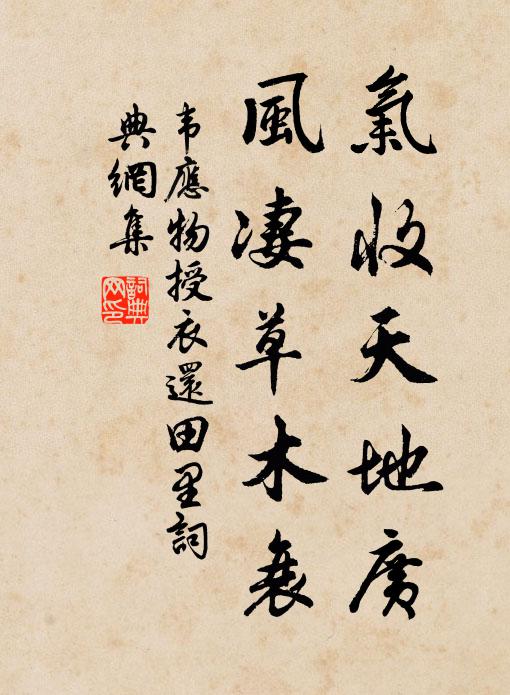 氣收天地廣
風淒草木衰
韦應物授衣還田里詞
典網集
詞典
网印